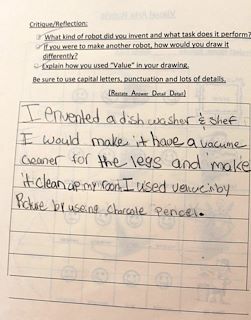 Critique/Reflection:
What kind of robot did you invent and what task does it perform?
If you were to make another robot, how would you draw it
differently?
Explain how you used "Value" in your drawing.
Be sure to use capital letters, punctuation and lots of details.
(Restate Answer Detail Detail)
I envented a dish washer & shef
I would make it have a vacume
cleaner for the legs and make
it clean up my room. I used
Picture by useing charcole pencel.